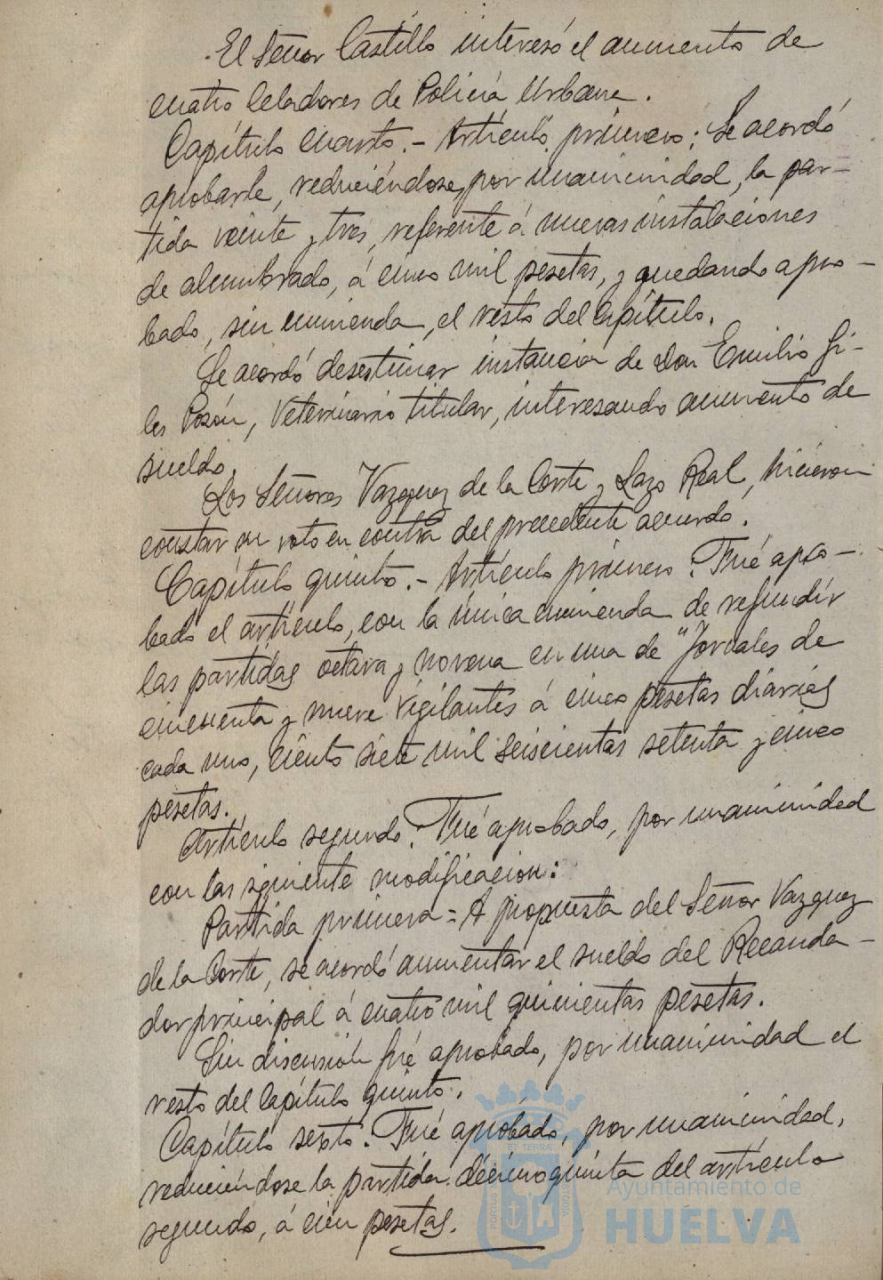 El Señor Castillo interesó el aumento de
cuatro Celadores de Policía Urbana.
Capítulo cuarto.- Artículo primero: Se acordó
aprobarle, reduciéndose, por unanimidad, la par-
tida veinte y tres, referente á nuevas instalaciones
de alumbrado, á cinco mil pesetas, y quedando apro-
bado, sin enmienda, el resto del Capítulo.
Se acordó desestimar instancia de Don Emilio Gi-
les Pozón, Veterinario titular, interesando aumento de
sueldo.
Los Señores Vazquez de la Corte y Lazo Real, hicieron
constar su voto en contra del precedente acuerdo.
Capítulo quinto.- Artículo primero: Fué apro-
bado el artículo, con la única enmienda de refundir
las partidas octava y novena en una de "Jornales de
cincuenta y nueve Vigilantes á cinco pesetas diarias
cada uno, ciento siete mil seiscientas setenta y cinco
pesetas.
Artículo segundo: Fué aprobado, por unanimidad
con las siguiente modificacion:
Partida primera = A propuesta del Señor Vazquez
de la Corte, se acordó aumentar el sueldo del Recauda-
dor principal á cuatro mil quinientas pesetas.
Sin discusión fué aprobado, por unanimidad el
resto del Capítulo quinto.
Capítulo sexto: Fué aprobado, por unanimidad,
reduciéndose la partida décimoquinta del artículo
segundo, á cien pesetas.
Ayuntamiento de
HUELVA